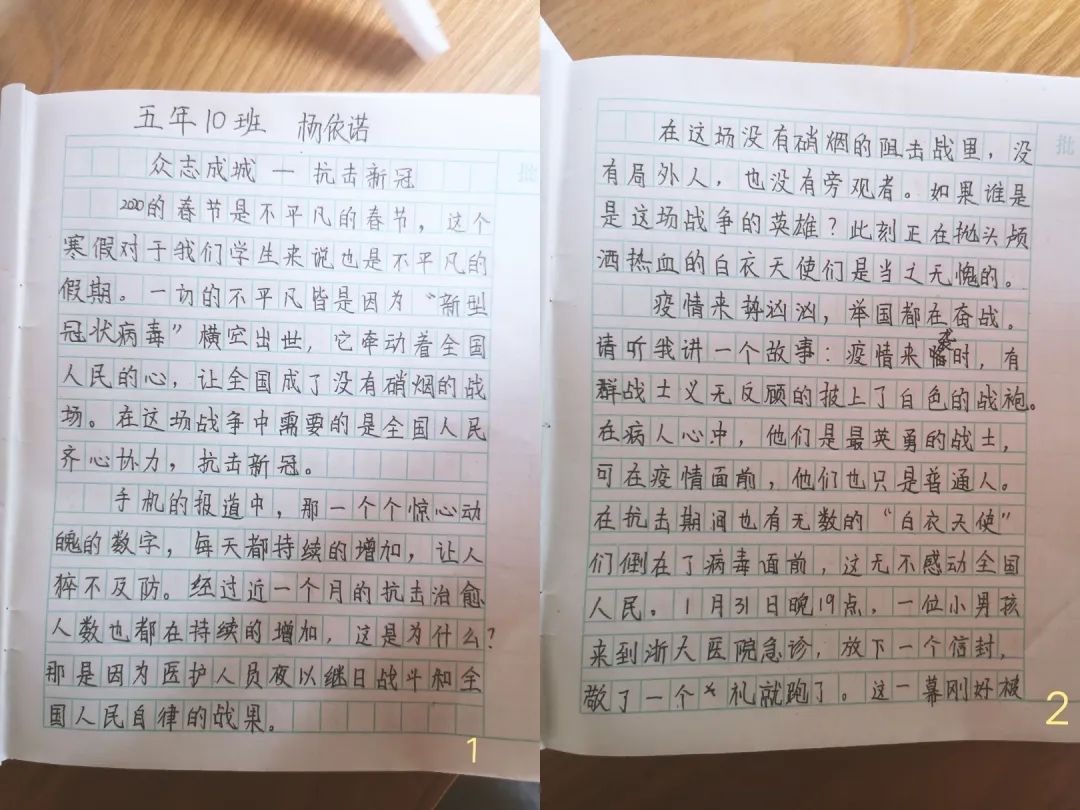 五年10班 杨依诺
众志成城一抗击新冠
2020的春节是不平凡的春节，这个
寒假对于我们学生来说也是不平凡的
假期。一切的不平凡皆是因为“新型
冠状病毒”横空出世，它牵动着全国
人民的心，让全国成了没有硝烟的战
场。在这场战争中需要的是全国人民
齐心协力，抗击新冠。
手机的报道中，那一个个惊心动
魄的数字，每天都持续的增加，让人
猝不及防。经过近一个月的抗击治愈
人数也都在持续的增加，这是为什么？
那是因为医护人员夜以继日战斗和全
国人民自律的战果。
1
在这场没有硝烟的阻击战里，没
有局外人，也没有旁观者。如果谁是
是这场战争的英雄？此刻正在抛头颅
洒热血的白衣天使们是当之无愧的。
疫情来势汹汹，举国都在奋战。
请听我讲一个故事：疫情来袭时，有
群战士义无反顾的披上了白色的战袍。
在病人心中，他们是最英勇的战士，
可在疫情面前，他们也只是普通人。
在抗击期间也有无数的“白衣天使”
们倒在了病毒面前，这无不感动全国
人民。1月31日晚19点，一位小男孩
来到浙大医院急诊，放下一个信封，
敬了一个礼就跑了。这一幕刚好被
2
批
批